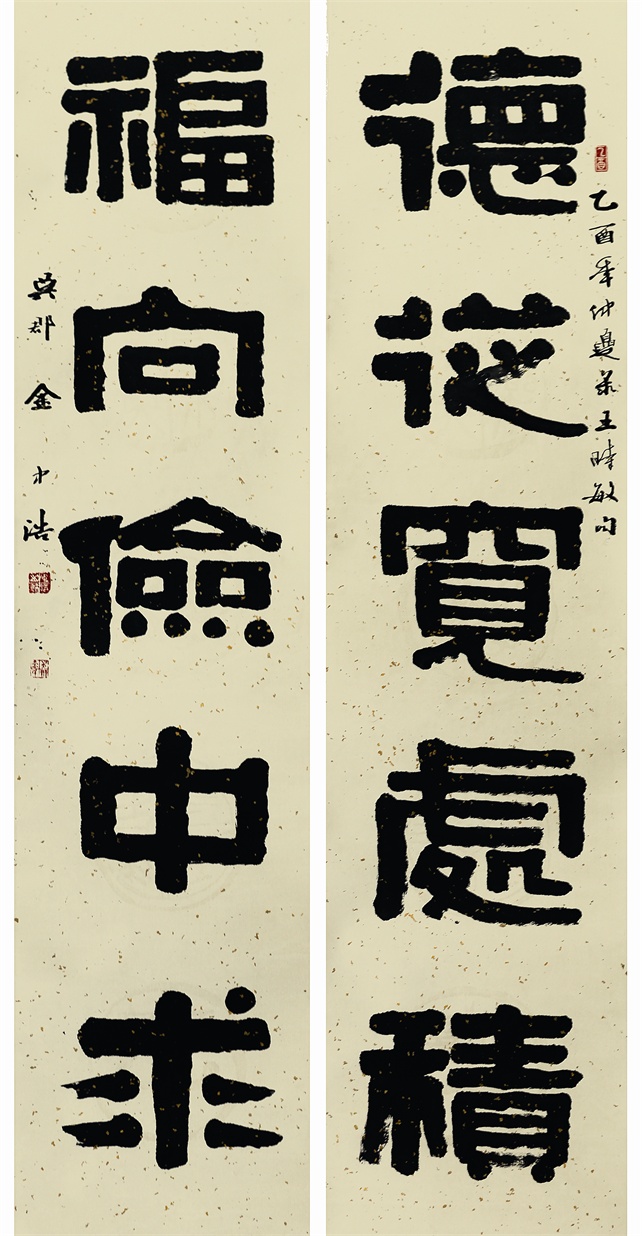 乙酉年仲夏录王時敏句
德從寬處積
福向儉中求
吳郡金才浩